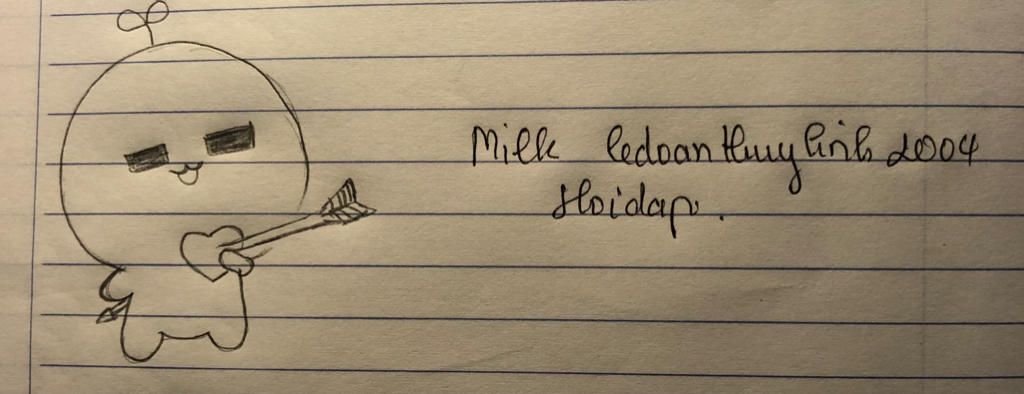 Milk ledoanthuylinh2004
Hoidap.